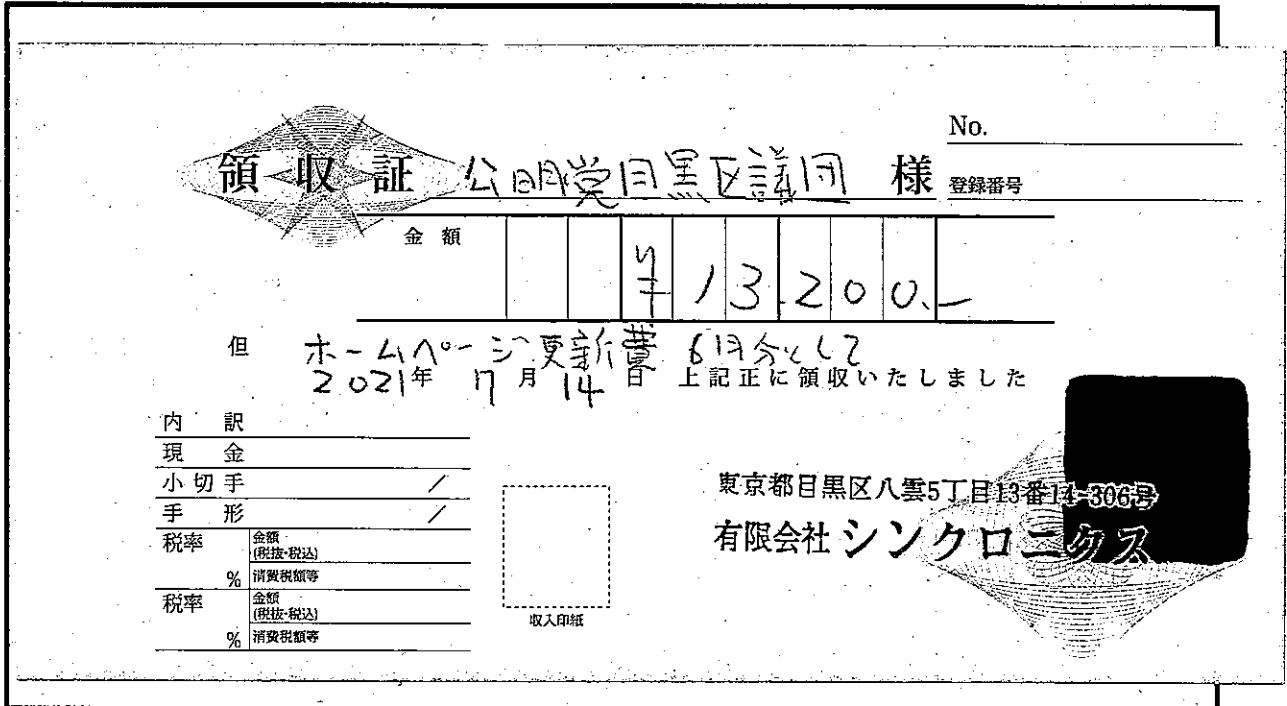 No.
領収証 公明党目黒区議団 様
登録番号
金額 ¥13.200.-
但 ホームページ更新費 6月分として
2021年 7月 14日 上記正に領収いたしました
内訳
現金
小切手 /
手形 /
税率 % 金額(税抜・税込)
消費税額等
税率 % 金額(税抜・税込)
消費税額等
収入印紙
東京都目黒区八雲5丁目13番14-306号
有限会社シンクロニクス